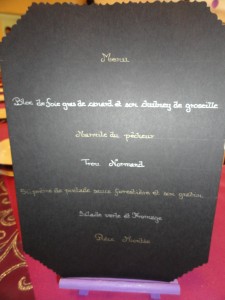 Menu
Bloc de foie gras de canard et son chutney de groseille
Marmite du pêcheur
Trou Normand
de pintade sauce forestière et son gratin
Salade verte et fromage
Pièce Montée